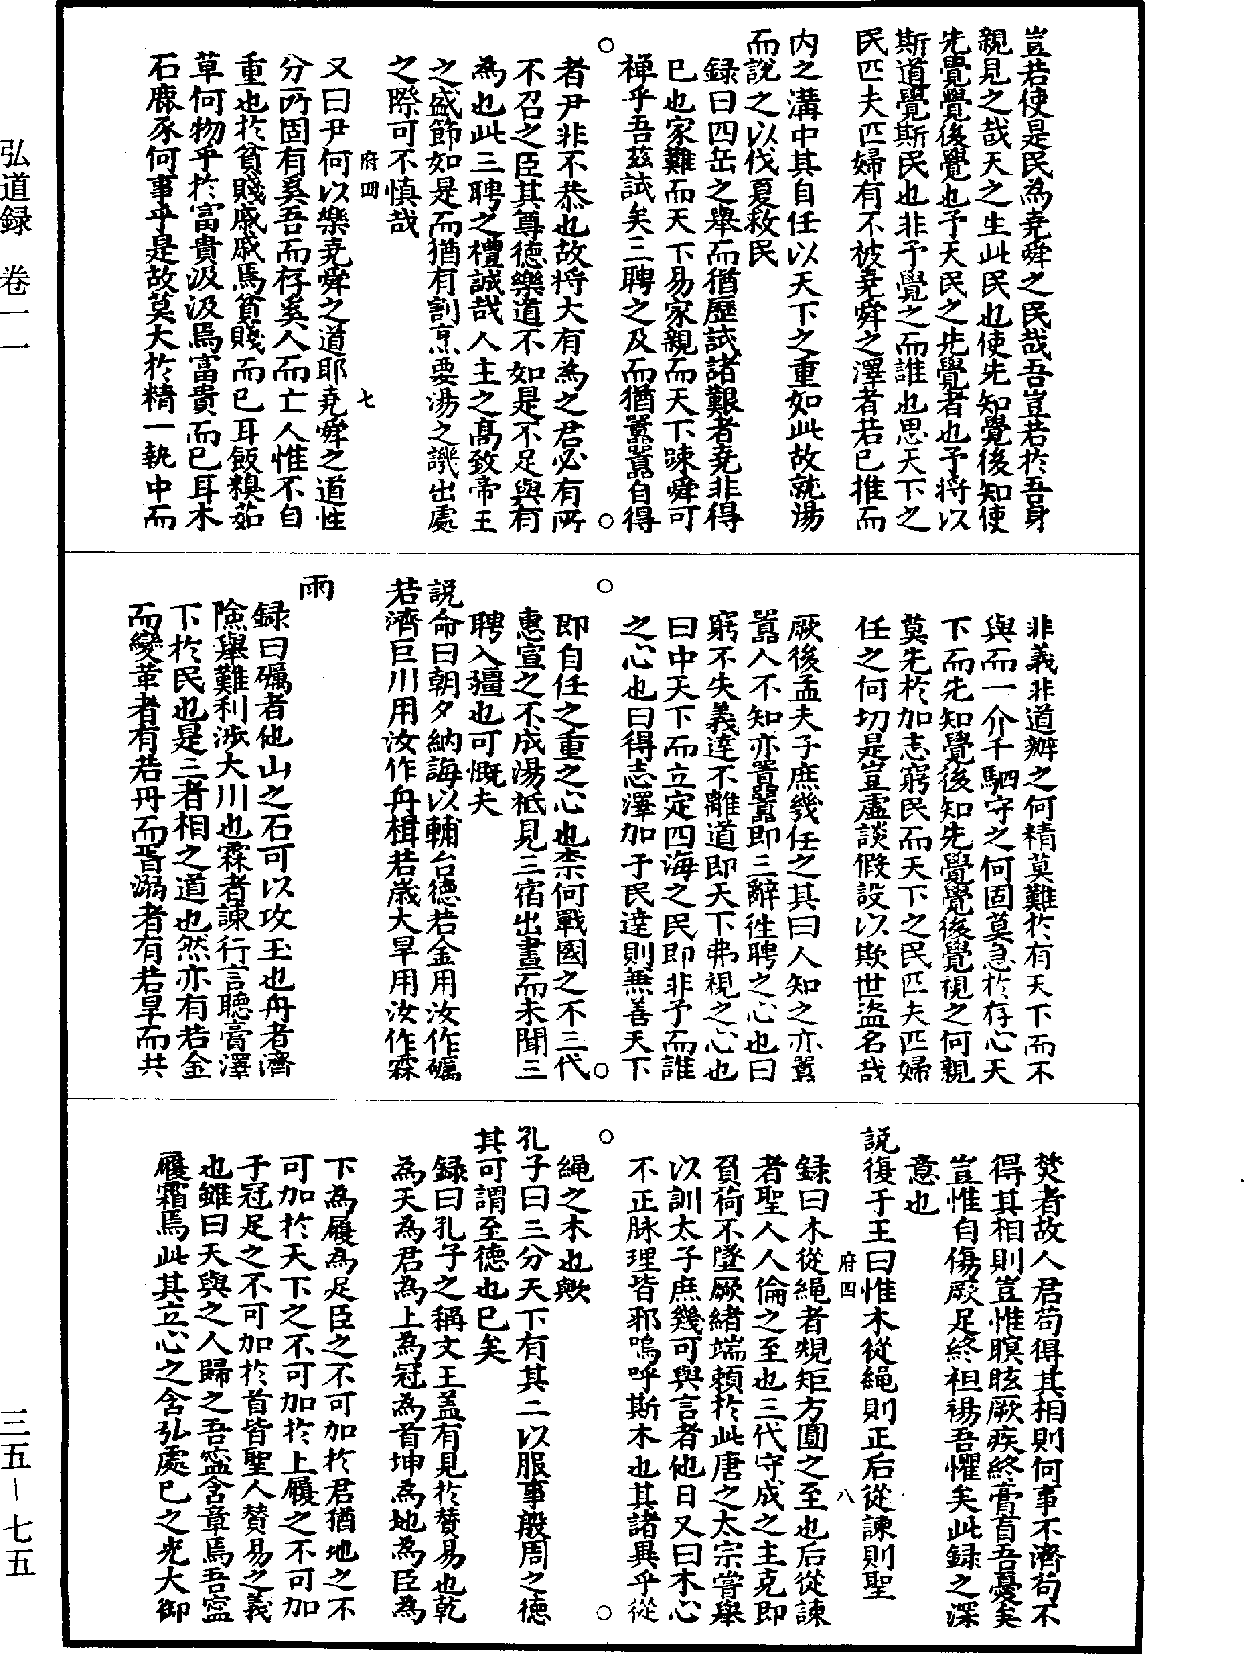 弘道録　卷一一
三五－七五
豈若使是民為堯舜之民哉吾豈若於吾身
親見之哉天之生此民也使先知覺後知使
先覺覺後覺也予天民之先覺者也予將以
斯道覺斯民也非予覺之而誰也思天下之
民匹夫匹婦有不被堯舜之澤者若已推而
內之溝中其自任以天下之重如此故就湯
而說之以伐夏救民
錄曰四岳之舉而猶歷試諸艱者堯非得
已也家難而天下易家親而天下踈舜可
禪乎吾茲試矣三聘之及而猶囂囂自得
者尹非不恭也故將大有為之君必有所
不召之臣其尊德樂道不如是不足與有
為也此三聘之禮誠哉人主之高致帝王
之盛節如是而猶有割烹要湯之譏出處
之際可不慎哉
府四　七
又曰尹何以樂堯舜之道耶堯舜之道性
分所固有奚吾而存奚人而亡人惟不自
重也於貧賤戚戚焉貧賤而已耳飯糗茹
草何物乎於富貴汲汲焉富貴而已耳木
石鹿豕何事乎是故莫大於精一執中而
非義非道辨之何精莫難於有天下而不
與而一介千駟守之何固莫急於存心天
下而先知覺後知先覺覺後覺視之何親
莫先於加志窮民而天下之民匹夫匹婦
任之何切是豈虛談假設以欺世盜名哉
厥後孟夫子庶幾任之其曰人知之亦囂
囂人不知亦囂囂即三辭徃聘之心也曰
窮不失義達不離道即天下弗視之心也
曰中天下而立定四海之民即非予而誰
之心也曰得志澤加于民達則兼善天下
即自任之重之心也柰何戰國之不三代
惠宣之不成湯祗見三宿出晝而未聞三
聘入疆也可慨夫
說命曰朝夕納誨以輔台德若金用汝作礪
若濟巨川用汝作舟楫若歲大旱用汝作霖
雨
錄曰礪者他山之石可以攻玉也舟者濟
險舉難利涉大川也霖者諫行言聽膏澤
下於民也是三者相之道也然亦有若金
而變革者有若丹而胥溺者有若旱而共
焚者故人君苟得其相則何事不濟苟不
得其相則豈惟瞑眩厥疾終膏肓吾憂矣
豈惟自傷厥足終袒裼吾懼矣此錄之深
意也
說復于王曰惟木從繩則正后從諫則聖
府四　八
錄曰木從繩者規矩方圓之至也后從諫
者聖人人倫之至也三代守成之主克即
負荷不墜厥緒端賴於此唐之太宗嘗舉
以訓太子庶幾可與言者他日又曰木心
不正脉理皆邪嗚呼斯木也其諸異乎從
繩之木也歟
孔子曰三分天下有其二以服事殷周之德
其可謂至德也已矣
錄曰孔子之稱文王蓋有見於贊易也乾
為天為君為上為冠為首坤為地為臣為
下為履為足臣之不可加於君猶地之不
可加於天下之不可加於上履之不可加
于冠足之不可加於首皆聖人贊易之義
也雖曰天與之人歸之吾寍含章焉吾寍
履霜焉此其立心之含弘處已之光大御